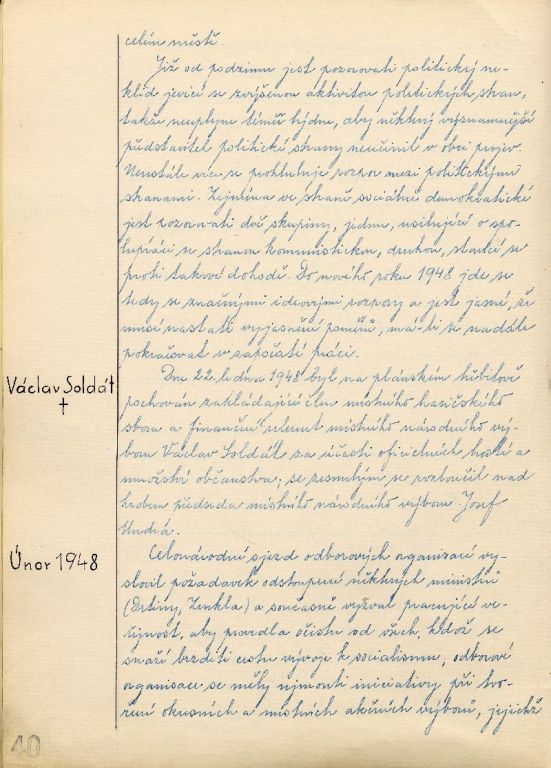 celém městě.
Již od podzimu jest pozorovati politický ne-
klid jevící se zvýšenou aktivitou politických stran,
takže neuplyne téměř týdne, aby některý významnější
představitel politické strany neučinil v obci projev.
Neustále více se prohlubuje rozpor mezi politickými
stranami. Zejména ve straně sociálně demokratické
jest pozorovati dvě skupiny, jednu, usilující o spo-
lupráci se stranou kommunistickou, druhou, stavící se
proti takové dohodě. Do nového roku 1948 jde se
tedy se značnými ideovými rozpory a jest jasné, že
musí nastati vyjasnění poměrů, má-li se nadále
pokračovat v započaté práci.
Václav Soldát
†
Dne 22. ledna 1948 byl na plánském hřbitově
pochován zakládající člen místního hasičského
sboru a finanční referent místního národního vý-
boru Václav Soldát za účasti oficielních hostí a
množství občanstva; se zesnulým se rozloučil nad
hrobem předseda místního národního výboru Josef
Undrá.
Únor 1948
Celonárodní sjezd odborových organisací vy-
slovil požadavek odstoupení některých ministrů
(Drtiny, Zenkla) a současně vyzval pracující ve-
řejnost, aby provedla očistu od všech, kdož se
snaží brzditi cestu vývoje k socialismu; odborové
organisace se měly ujmouti iniciativy při tvo-
ření okresních a místních akčních výborů, jejichž
40